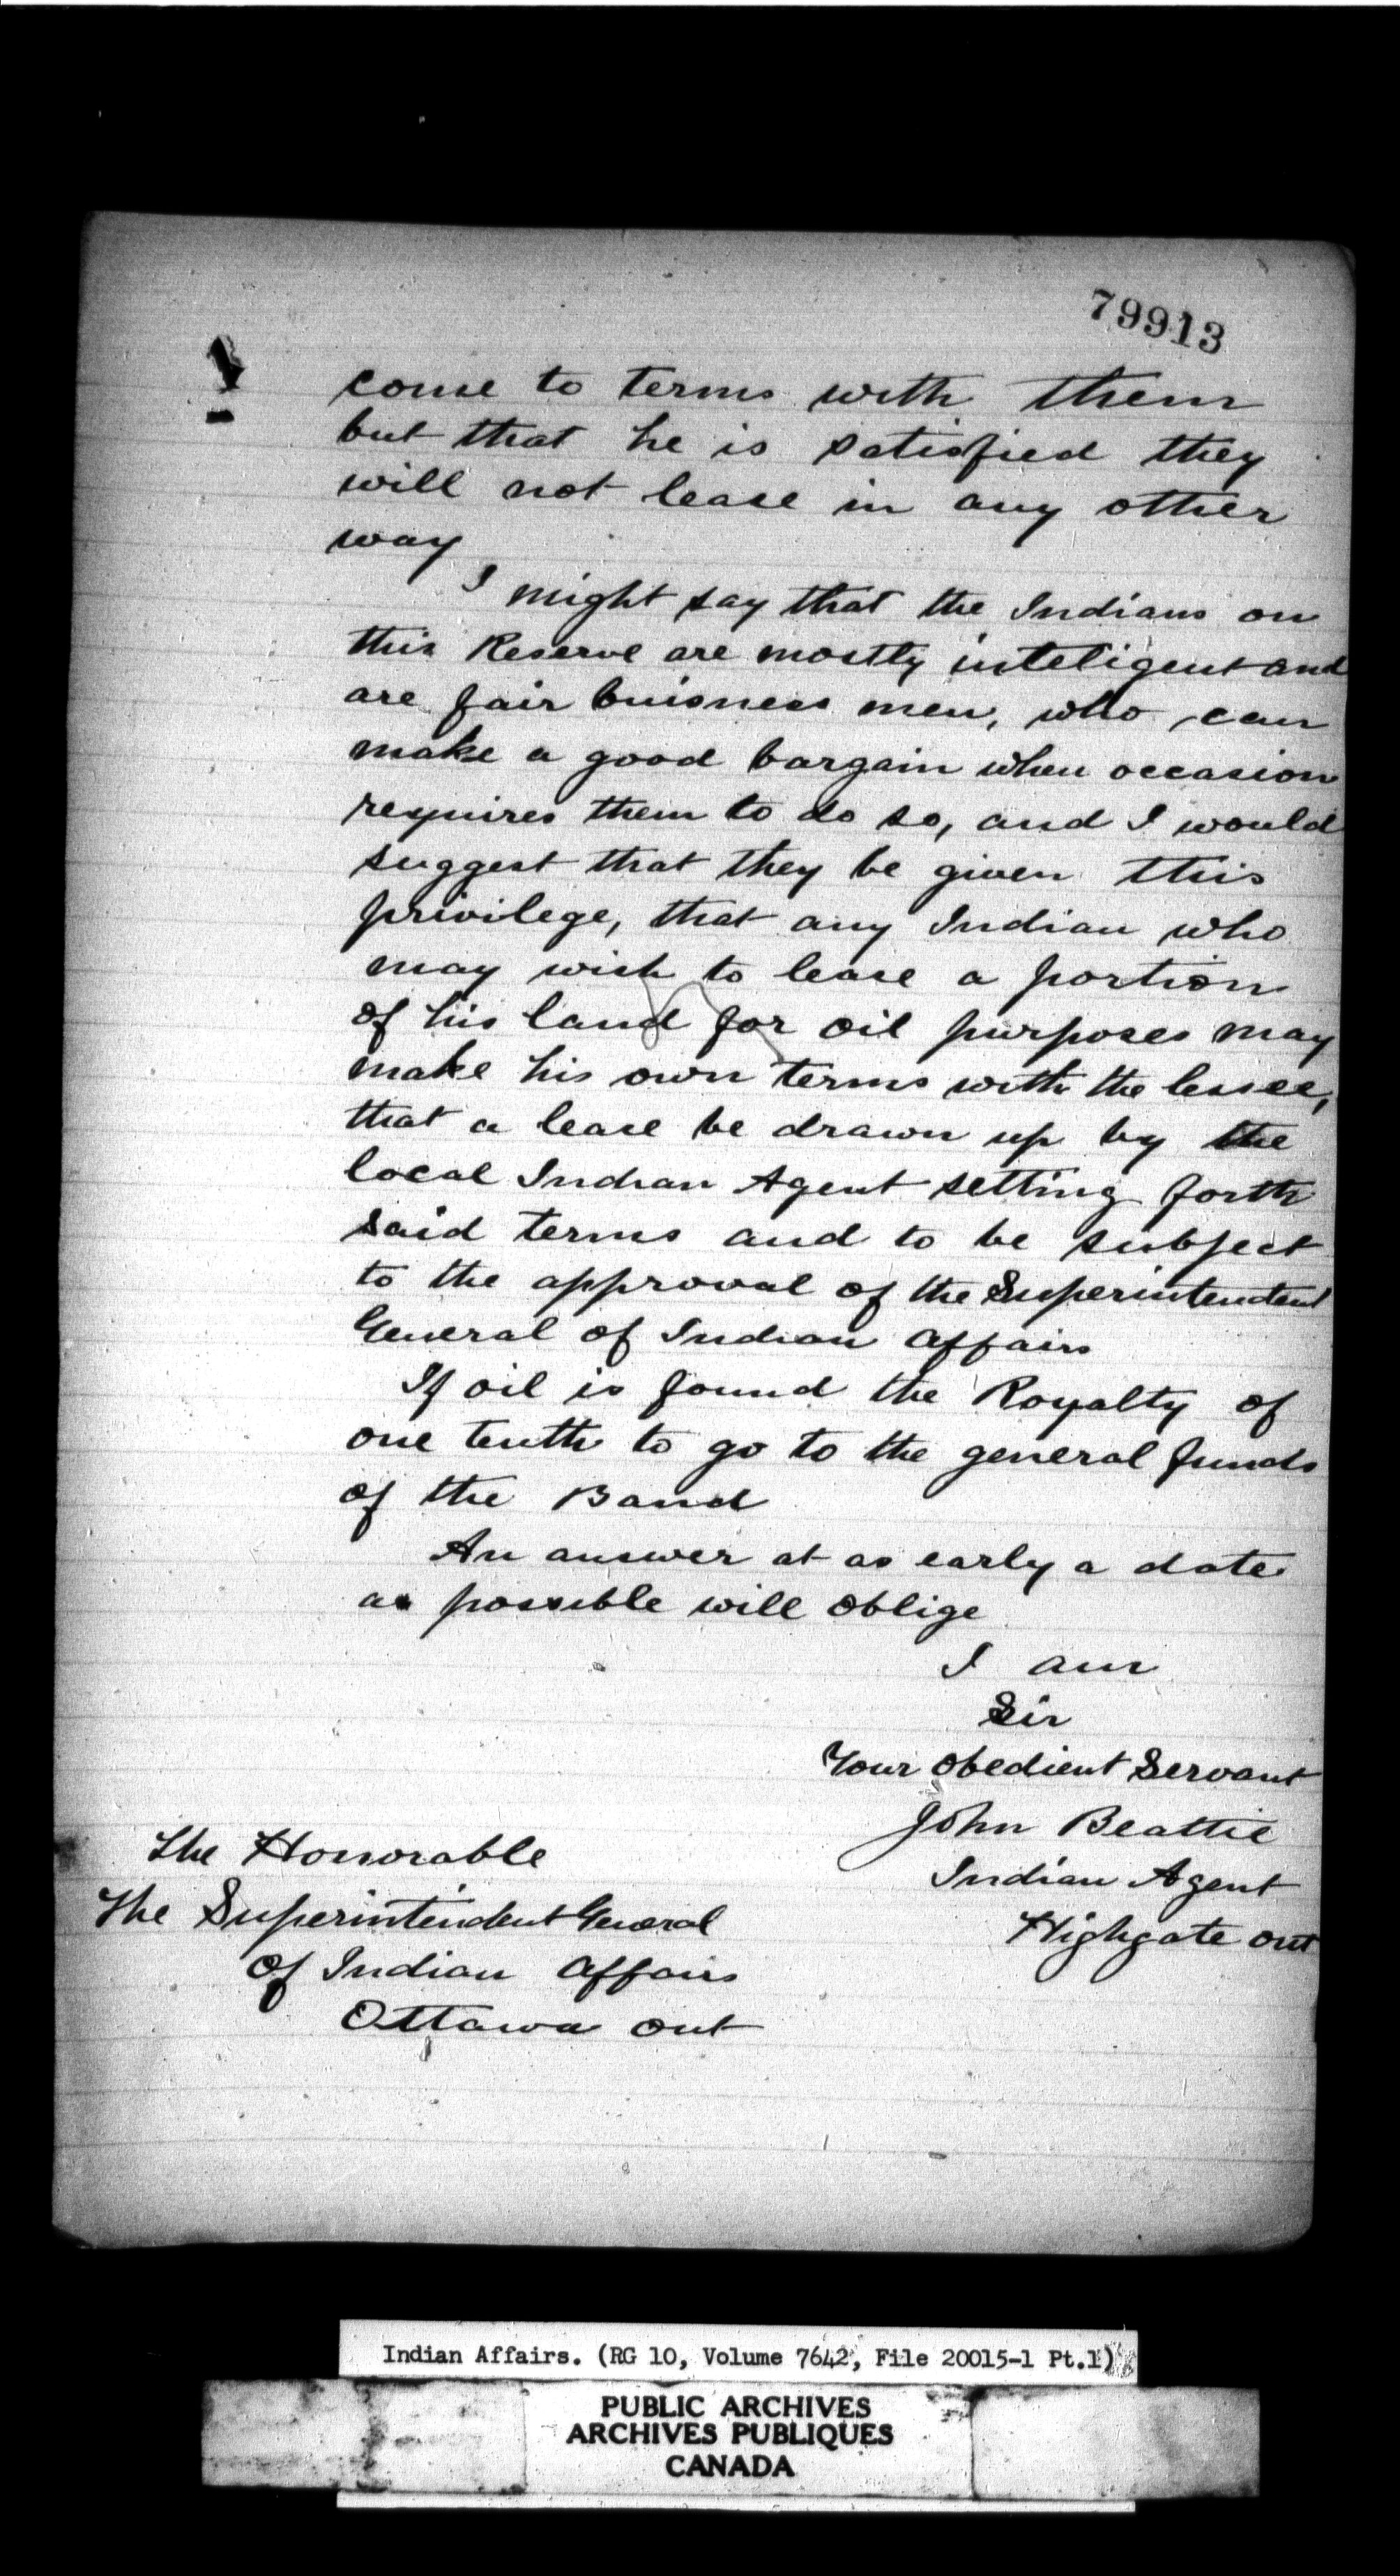 79913
come to terms with them
but that he is satisfied they
will not lease in any other
way
I might say that the Indians on
this Reserve are mostly inteligent and
are fair buisness men, who can
make a good bargain when occasion
requires them to do so, and I would
suggest that they be given this
privilege, that any Indian who
may wish to lease a portion
of his land for oil purposes may
make his own terms with the lessee,
that a lease be drawn up by the
local Indian Agent setting forth
said terms and to be subject
to the approval of the Superintendent
General of Indian Affairs
If oil is found the Royalty of
one tenth to go to the general funds
of the Band
An answer at as early a date
as possible will oblige
I am
Sir
Your Obedient Servant
John Beattie
Indian Agent
Highgate Ont
The Honorable
The Superintendent General
Of Indian Affairs
Ottawa Ont
Indian Affairs. (RG 10, Volume 7642, File 20015-1 Pt.1)
PUBLIC ARCHIVES
ARCHIVES PUBLIQUES
CANADA